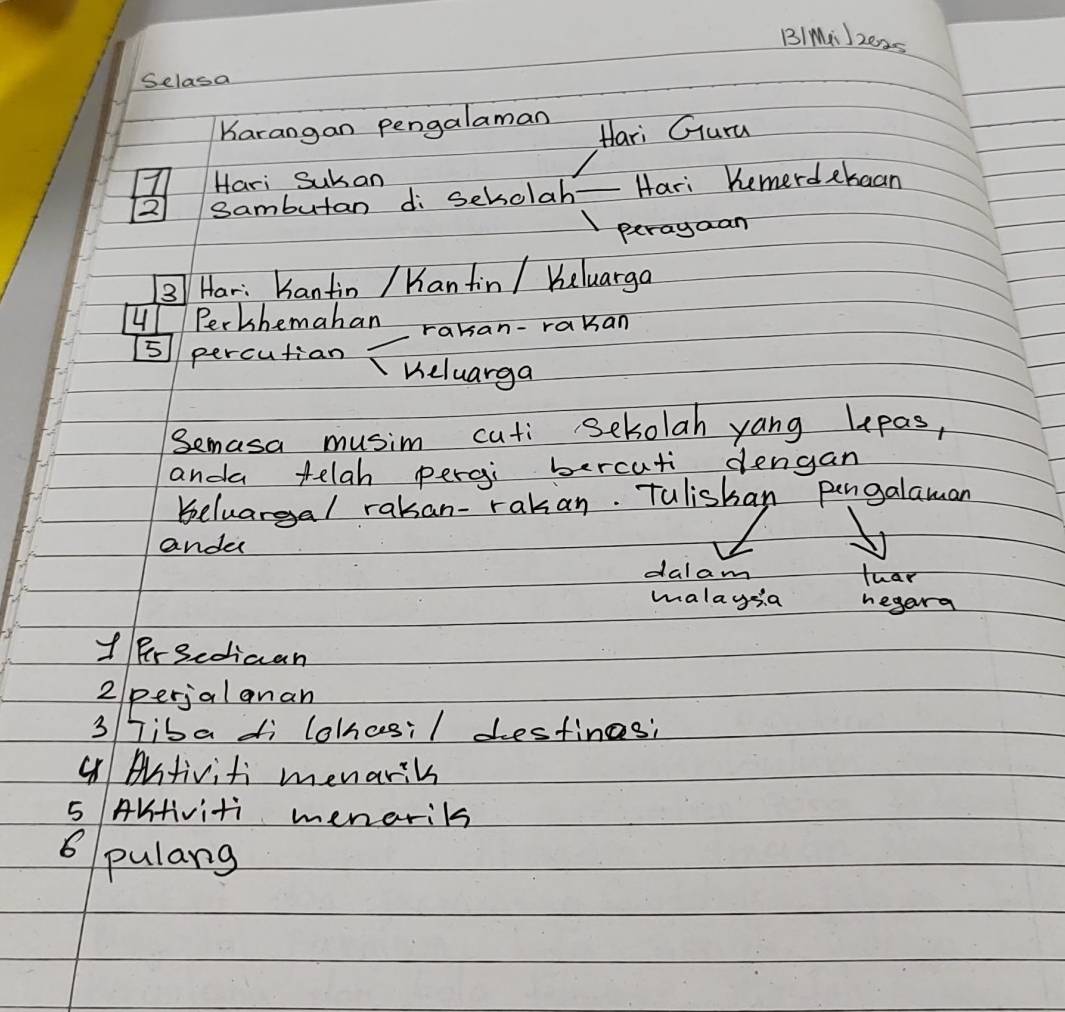 13/Mei/2025
Selasa
Karangan pengalaman
Hari Guru
1 Hari Sukan
2 Sambutan di sekolah — Hari Kemerdekaan
perayaan
3 Hari Kantin / Kantin / Keluarga
4 Perkhemahan
rakan-rakan
5 percutian
Keluarga
Semasa musim cuti sekolah yang lepas,
anda telah pergi bercuti dengan
keluarga/ rakan-rakan. Tuliskan pengalaman
anda
dalam luar
malaysia negara
1 Persediaan
2 perjalanan
3 Tiba di lokasi / destinasi
4 Aktiviti menarik
5 Aktiviti menarik
6 pulang